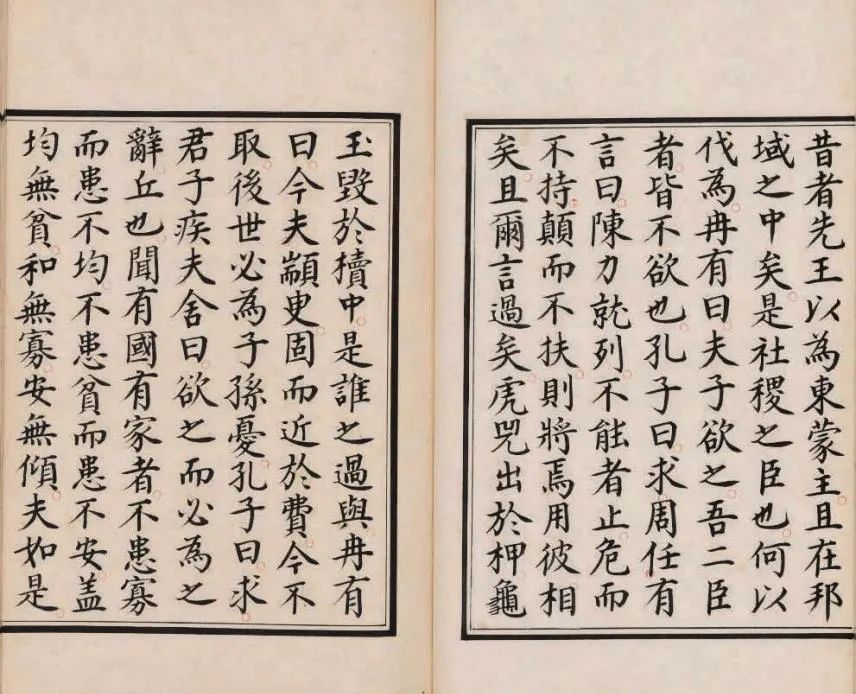 昔者先王以為東蒙主且在邦
域之中矣是社稷之臣也何以
伐為冉有曰夫子欲之吾二臣
者皆不欲也孔子曰求周任有
言曰陳力就列不能者止危而
不持顛而不扶則將焉用彼相
矣且爾言過矣虎兕出於柙龜
玉毀於櫝中是誰之過與冉有
曰今夫顓臾固而近於費今不
取後世必為子孫憂孔子曰求
君子疾夫舍曰欲之而必為之
辭丘也聞有國有家者不患寡
而患不均不患貧而患不安盖
均無貧和無寡安無傾夫如是